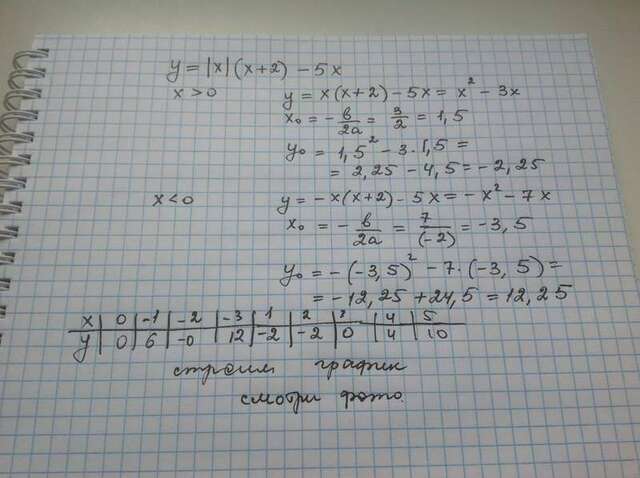 y = |x|(x+2) - 5x
x > 0 y = x(x+2) - 5x = x² - 3x
x₀ = - b/2a = 3/2 = 1,5
y₀ = 1,5² - 3·1,5 =
= 2,25 - 4,5 = -2,25
x < 0 y = -x(x+2) - 5x = -x² - 7x
x₀ = - b/2a = 7/(-2) = -3,5
y₀ = -(-3,5)² - 7·(-3,5) =
= -12,25 + 24,5 = 12,25
x | 0 | -1 | -2 | -3 | 1 | 2 | | 4 | 5
y | 0 | 6 | -0 | 12 | -2 | -2 | 0 | 4 | 10
строим график
смотри фото.